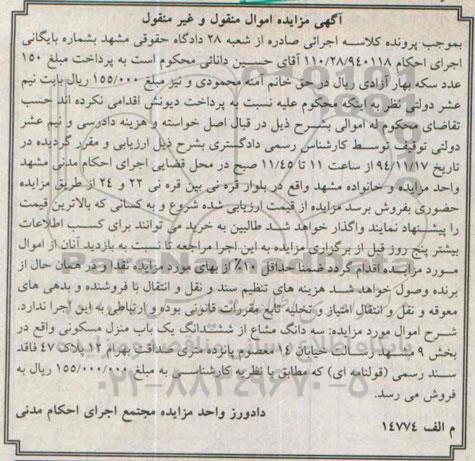 آگهی مزایده اموال منقول و غیر منقول
بموجب پرونده کلاسه اجرائی صادره از شعبه ۲۸ دادگاه حقوقی مشهد بشماره بایگانی
اجرای احکام ۱۱۰/۲۸/۹۴۰۱۱۸ آقای حسین دانائی محکوم است به پرداخت مبلغ ۱۵۰
عدد سکه بهار آزادی ریال در حق خانم آمنه محمودی و نیز مبلغ ۱۵۵/۰۰۰ ریال بابت نیم
عشر دولتی نظر به اینکه محکوم علیه نسبت به پرداخت دیونش اقدامی نکرده اند حسب
تقاضای محکوم له اموالی بشرح ذیل در قبال اصل خواسته و هزینه دادرسی و نیم عشر
دولتی توقیف توسط کارشناس رسمی دادگستری بشرح ذیل ارزیابی و مقرر گردیده در
تاریخ ۹۴/۱۱/۱۷ از ساعت ۱۱ تا ۱۱/۴۵ صبح در محل قضایی اجرای احکام مدنی مشهد
واحد مزایده و خانواده مشهد واقع در بلوار قره نی بین قره نی ۲۲ و ۲۴ از طریق مزایده
حضوری بفروش برسد مزایده از قیمت ارزیابی شده شروع و به کسانی که بالاترین قیمت
را پیشنهاد نمایند واگذار خواهد شد طالبین به خرید می توانند برای کسب اطلاعات
بیشتر پنج روز قبل از برگزاری مزایده به این اجرا مراجعه تا نسبت به بازدید آنان از اموال
مورد مزایده اقدام گردد ضمنا حداقل ۱۰٪ از بهای مورد مزایده نقدا و در همان حال از
برنده وصول خواهد شد هزینه های تنظیم سند و نقل و انتقال با فروشنده و بدهی های
معوقه و نقل و انتقال امتیاز و تخلیه تابع مقررات قانونی بوده و ارتباطی به این اجرا ندارد.
شرح اموال مورد مزایده: سه دانگ مشاع از ششدانگ یک باب منزل مسکونی واقع در
بخش ۹ مشهد رسالت خیابان ۱۴ معصوم پانزده متری صداقت بهرام ۱۲ پلاک ۴۷ فاقد
سند رسمی (قولنامه ای) که مطابق با نظریه کارشناسی به مبلغ ۱۵۵/۰۰۰/۰۰۰ ریال به
فروش می رسد.
دادورز واحد مزایده مجتمع اجرای احکام مدنی
م الف ۱۴۷۷۴
ParsNamadData
۰۲۱-۸۸۳۴۹۶۷۰-۵